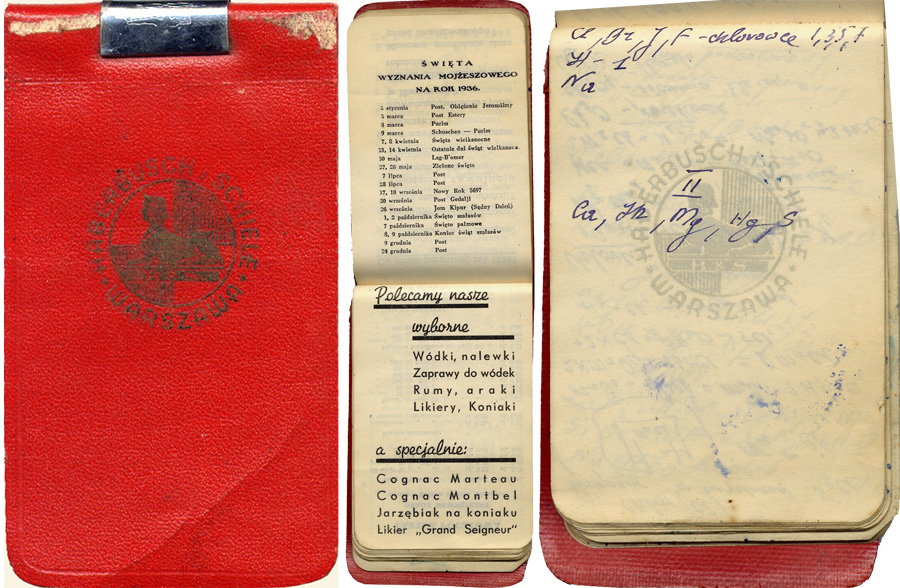 HABERBUSCH SCHIELE
WARSZAWA
ŚWIĘTA
WYZNANIA MOJŻESZOWEGO
NA ROK 1936.
5 stycznia Post. Oblężenie Jerozolimy
5 marca Post Estery
8 marca Purim
9 marca Schuschan — Purim
7, 8 kwietnia Święta wielkanocne
13, 14 kwietnia Ostatnie dni świąt wielkanocn.
10 maja Lag-B'omer
27, 28 maja Zielone święta
7 lipca Post
28 lipca Post
17, 18 września Nowy Rok 5697
20 września Post Gedalji
26 września Jom Kipur (Sądny Dzień)
1, 2 października Święto szałasów
7 października Święto palmowe
8, 9 października Koniec świąt szałasów
9 grudnia Post
24 grudnia Post
Polecamy nasze
wyborne
Wódki, nalewki
Zaprawy do wódek
Rumy, araki
Likiery, Koniaki
a specjalnie:
Cognac Marteau
Cognac Montbel
Jarzębiak na koniaku
Likier „Grand Seigneur"
Cl, Br, J, F - chlorowce 1,3,5,7
H - I
Na
II
Ca, Zn, Mg, Hg, S
HABERBUSCH SCHIELE
WARSZAWA